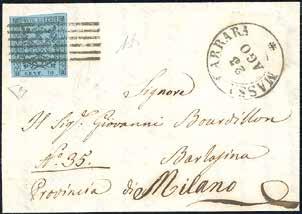 CENT. 10
MASSA CARRARA
AGO
Signore
Il Sig.r Giovanni Bourdillon
N.o 35.
Barlasina
Provincia di Milano